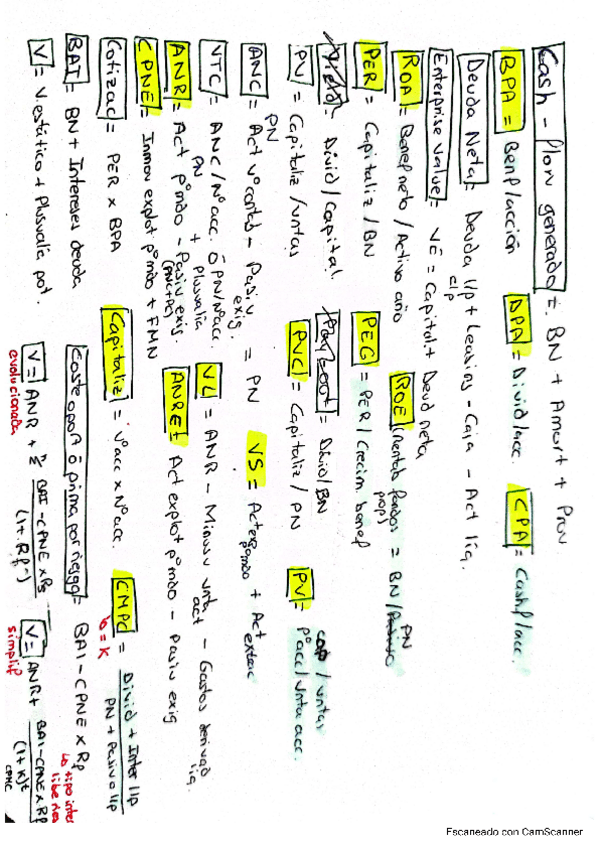 Cash-flow generado = BN + Amort + Prov
BPA = Benf/acción DPA = Divid/acc. CPA = Cashf/acc.
Deuda Neta = Deuda l/p + c/p + Leasing - Caja - Act líq.
Enterprise value = VE = Capital + Deud neta
ROA = Benef neto / Activo año ROE (rentab fondos prop) = BN / PN
PER = Capitaliz / BN PEG = PER / Crecim. benef
Yield = Divid / Capital. Pay-out = Divid / BN
PV = Capitaliz / Vntas PVC = Capitaliz / PN PV = cap / Vntas
Pº acc / Vnta acc.
ANC = Act vº contab - Pasiv exig. = PN VS = Act + Act extric
PN
VTC = ANC / Nº acc. ó PN / Nº acc. VL = ANR - Minusv vnta act - Gastos derivad liq.
PN + Plusvalía
ANR = Act pº mdo - Pasiv exig. (PNC + PC) ANRE = Act explot pº mdo - Pasiv exig
CPNE = Inmov explot pº mdo + FMN
Cotizac = PER x BPA Capitaliz = Vº acc x Nº acc. CMPC = Divid + Inter l/p / PN + Pasivo l/p
= K
BAI = BN + Intereses deuda Coste oport ó prima por riesgo = BAI - CPNE x Rp
tipo inter libre
V = V. estático + Plusvalía pot. V = ANR + Σ BAI - CPNE x Rp / (1 + Rp) V = ANR + BAI - CPNE x Rp / (1 + K)t
evolucionada simplif CPMC
Escaneado con CamScanner